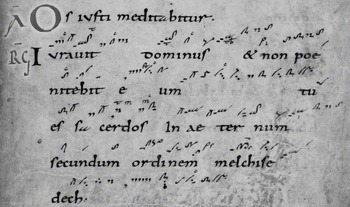 A Os iusti meditabitur.
RG Iurauit dominus & non poe
nitebit e um tu
es sacerdos In ae ter num
secundum ordinem melchise
dech.